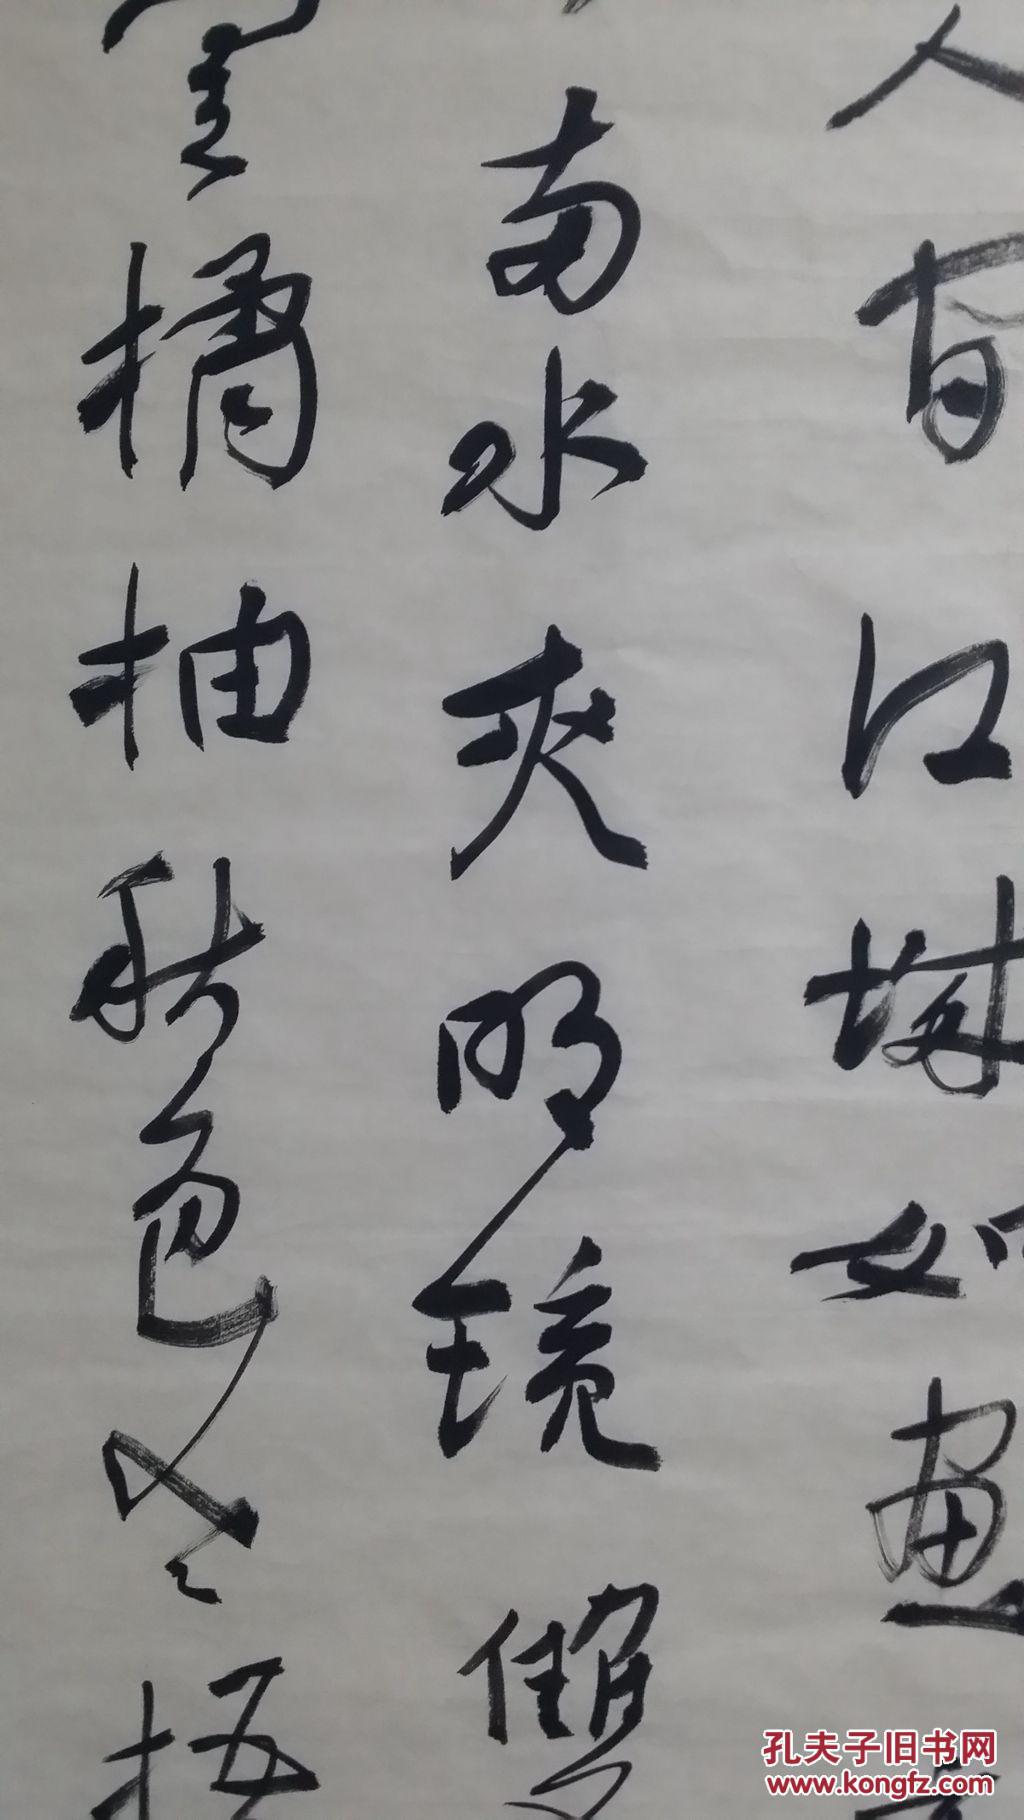 人江城如畫
兩水夾明鏡雙
寒橘柚秋色老梧
孔夫子旧书网
www.kongfz.com